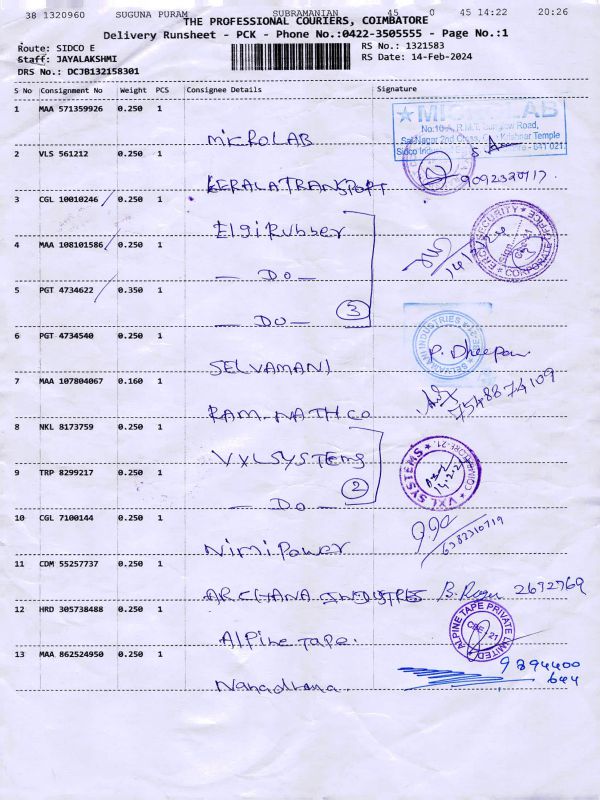 38 1320960 SUGUNA PURAM SUBRAMANIAN 45 0 45 14:22 20:26
THE PROFESSIONAL COURIERS, COIMBATORE
Delivery Runsheet - PCK - Phone No.:0422-3505555 - Page No.:1
Route: SIDCO E
Staff: JAYALAKSHMI
DRS No.: DCJB132158301
RS No.: 1321583
RS Date: 14-Feb-2024
S No Consignment No Weight PCS Consignee Details Signature
1 MAA 571359926 0.250 1
MICROLAB
MICROLAB
Road,
Krishner Temple
641 021.
2 VLS 561212 0.250 1
KERALA TRANSPORT
9092320717.
3 CGL 10010246 0.250 1
Elgi Rubber
SECURITY
CORPORATE OFFICE
4 MAA 108101586 0.250 1
— DO —
14/2/24
5 PGT 4734622 0.350 1
— DO —
3
6 PGT 4734540 0.250 1
SELVAMANI
SELVAMANI INDUSTRIES
P. Dheepan
7 MAA 107804067 0.160 1
RAM-NATH CO
7548874109
8 NKL 8173759 0.250 1
VXL SYSTEMS
VXL SYSTEMS
9 TRP 8299217 0.250 1
— DO —
2
10 CGL 7100144 0.250 1
Nimi Power
6382310719
11 CDM 55257737 0.250 1
ARCHANA INDUSTRES
2672769
12 HRD 305738488 0.250 1
Alpine Tape.
ALPINE TAPE PRIVATE LIMITED
CBE - 21
13 MAA 862524950 0.250 1
9894400
644